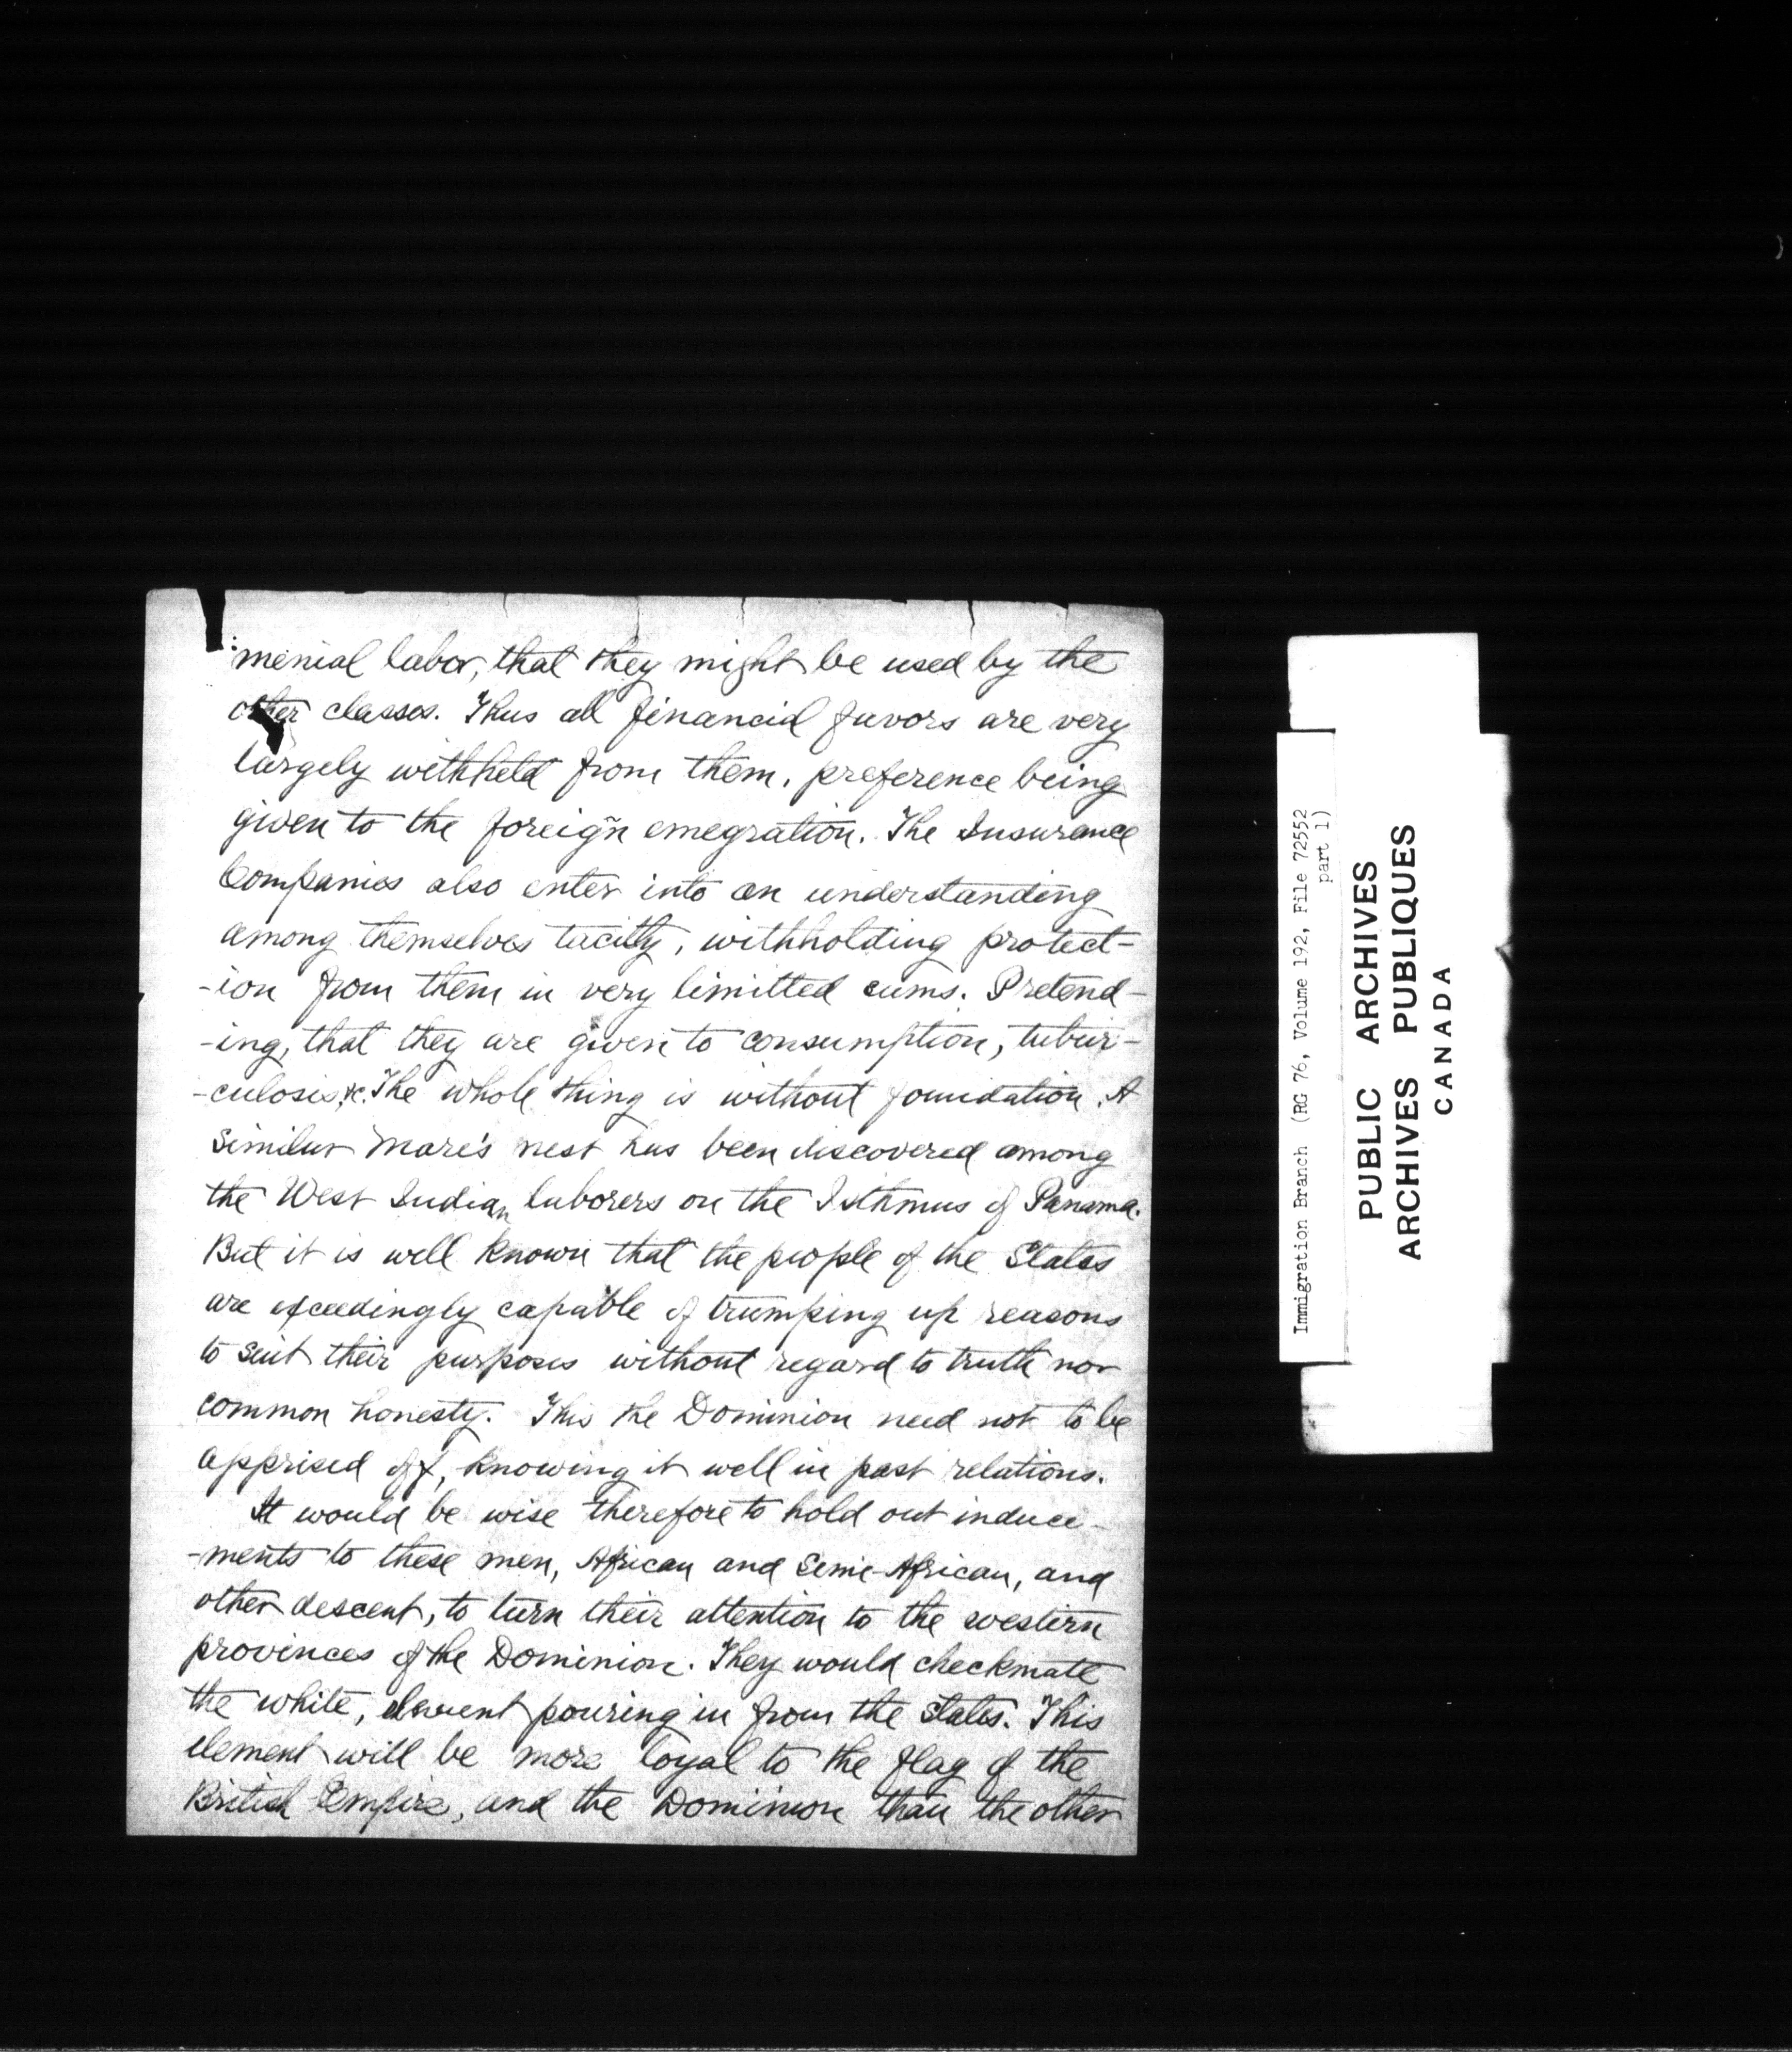 menial labor, that they might be used by the
other classes. Thus all financial favors are very
largely withheld from them, preference being
given to the foreign emegration. The Insurance
Companies also enter into an understanding
among themselves tacitly, withholding protect-
-ion from them in very limitted sums. Pretend-
-ing, that they are given to consumption, tubur-
-culosis &c. The whole thing is without foundation. A
similar mare's nest has been discovered among
the West Indian laborers on the Isthmus of Panama.
But it is well known that the people of the States
are exceedingly capable of trumping up reasons
to suit their purposes without regard to truth nor
common honesty. This the Dominion need not to be
apprised of, knowing it well in past relations.
It would be wise therefore to hold out induce-
-ments to these men, African and Semi-African, and
other descent, to turn their attention to the western
provinces of the Dominion. They would checkmate
the white, element pouring in from the States. This
element will be more loyal to the flag of the
British Empire, and the Dominion than the other
Immigration Branch (RG 76, Volume 192, File 72552
part 1)
PUBLIC ARCHIVES
ARCHIVES PUBLIQUES
CANADA